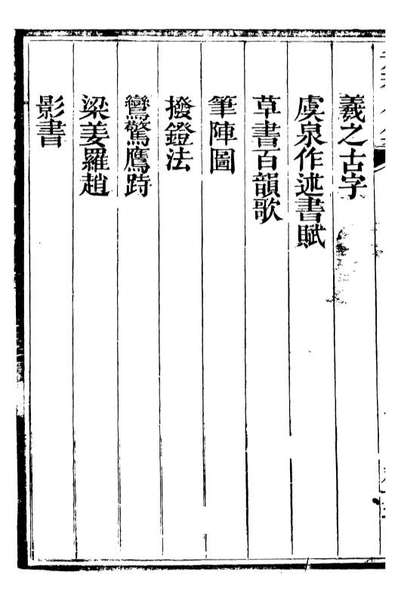 羲之古字
虞泉作述書賦
草書百韻歌
筆陣圖
撥鐙法
鸞驚鷹跱
梁姜羅趙
影書